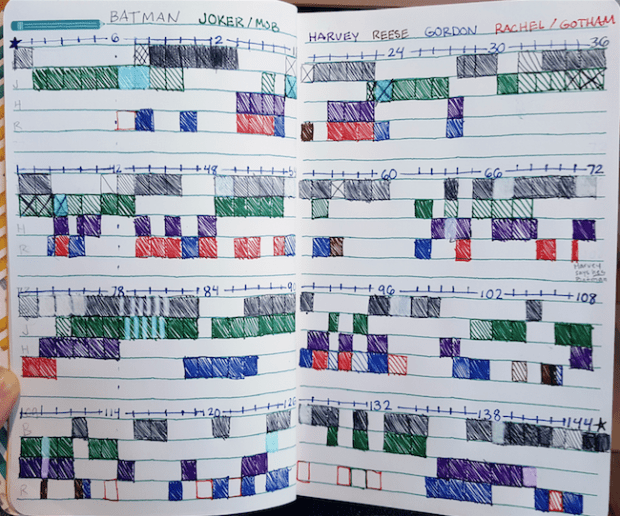 BATMAN JOKER/MOB HARVEY REESE GORDON RACHEL/GOTHAM
6 12 24 30 36
J
H
R
42 48 60 66 72
H
R
HARVEY
SAYS HE'S
BATMAN
78 84 96 102 108
J
H
114 120 126 132 138 144
B
J
R